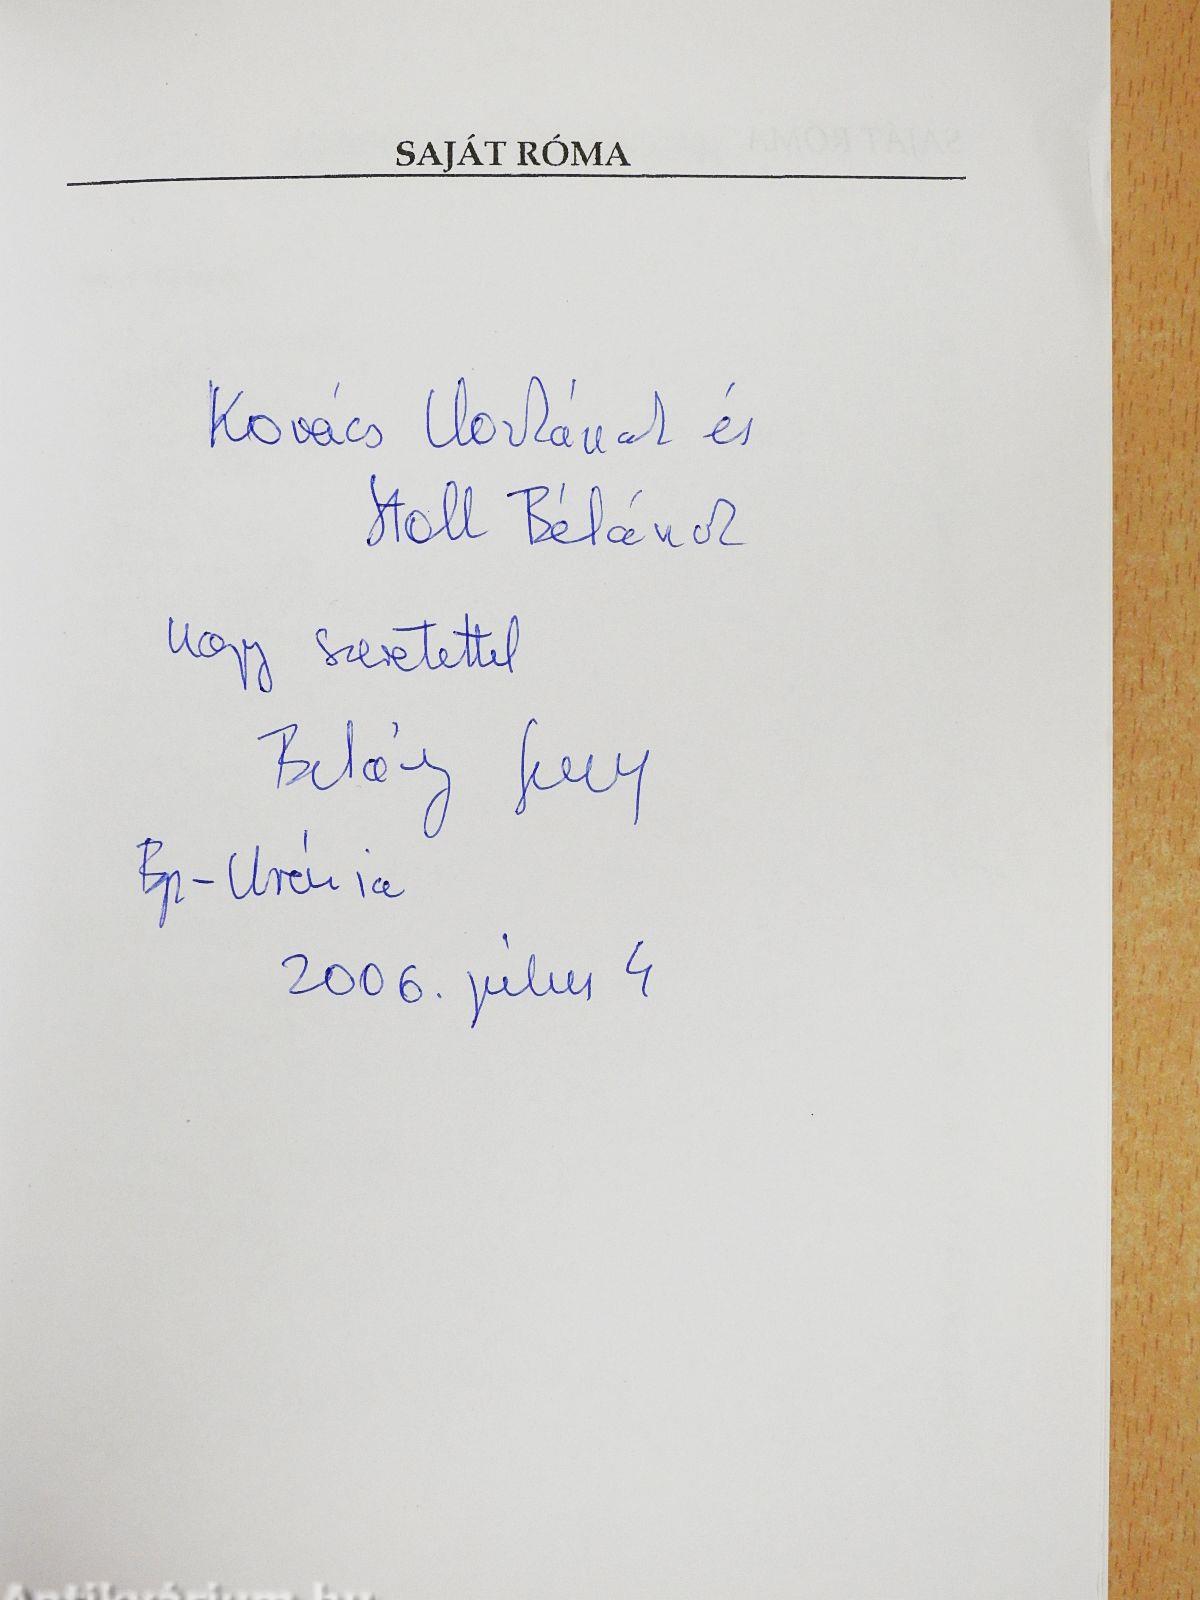 SAJÁT RÓMA
Kovács és
Stoll Bélának
nagy szeretettel
Bp-Uránia
2006. július 4